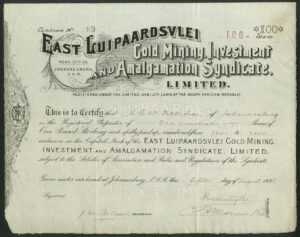 Certificate No 19
100
*100*
Shares
EAST LUIPAARDSVLEI
HEAD OFFICE
JOHANNESBURG,
S.A.R.
Gold Mining, Investment
AND Amalgamation Syndicate,
LIMITED.
REGISTERED UNDER THE LIMITED LIABILITY LAWS OF THE SOUTH AFRICAN REPUBLIC.
This is to Certify that of Johannesburg
is the Registered Proprietor of One Hundred Shares of
One Pound Sterling each fully paid up, numbered from to
inclusive in the Capital Stock of the EAST LUIPAARDSVLEI GOLD MINING,
INVESTMENT AND AMALGAMATION SYNDICATE, LIMITED,
subject to the Articles of Association and Rules and Regulations of the Syndicate.
Given under our hand at Johannesburg, S.A.R. this day of August 189